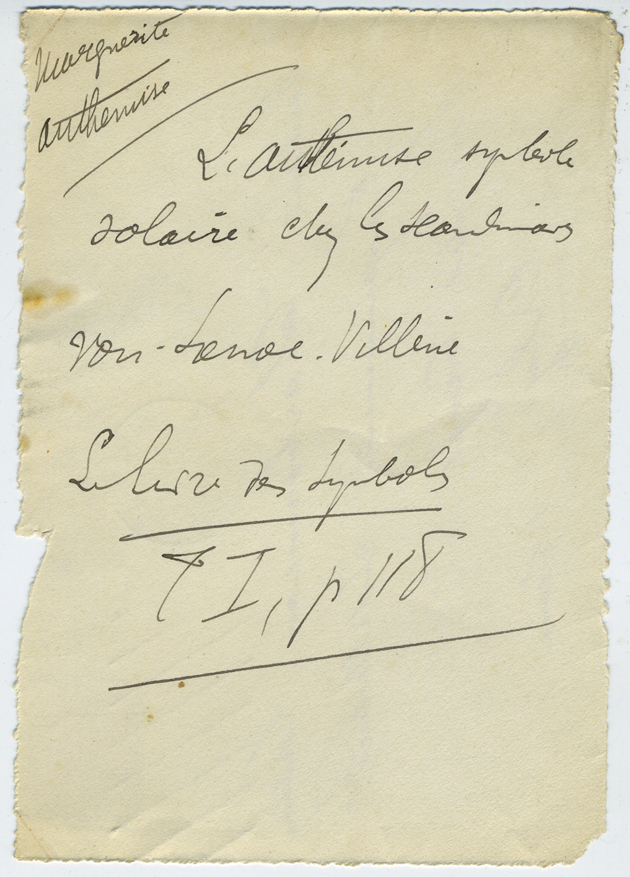 Marguerite
anthemise
L'anthémise symbole
solaire chez les Scandinaves
voir - Lanoe - Villène
Le livre des symboles
T I, p 118